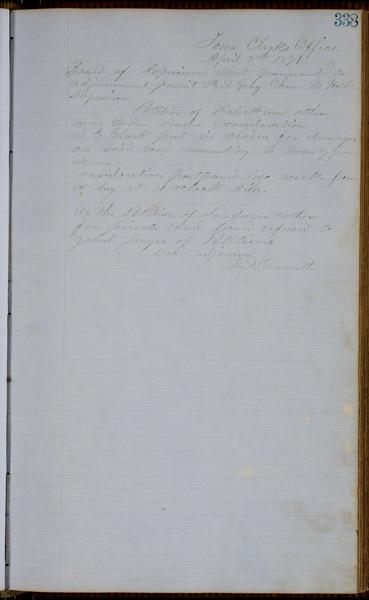 338
Town Clerks Office
April 5th 187
Board of Supervisors met pursuant to
adjournment present
Supervisor
Petition of and others
was taken under Consideration
S E Clark put in Claim for damages
on said road amounting to twenty five
dollars
Consideration postponed two weeks from
to day at 10 oclock A.M.
On the Petition of & others
for private road Board refused to
grant prayer of Petitioners
Board adjourned